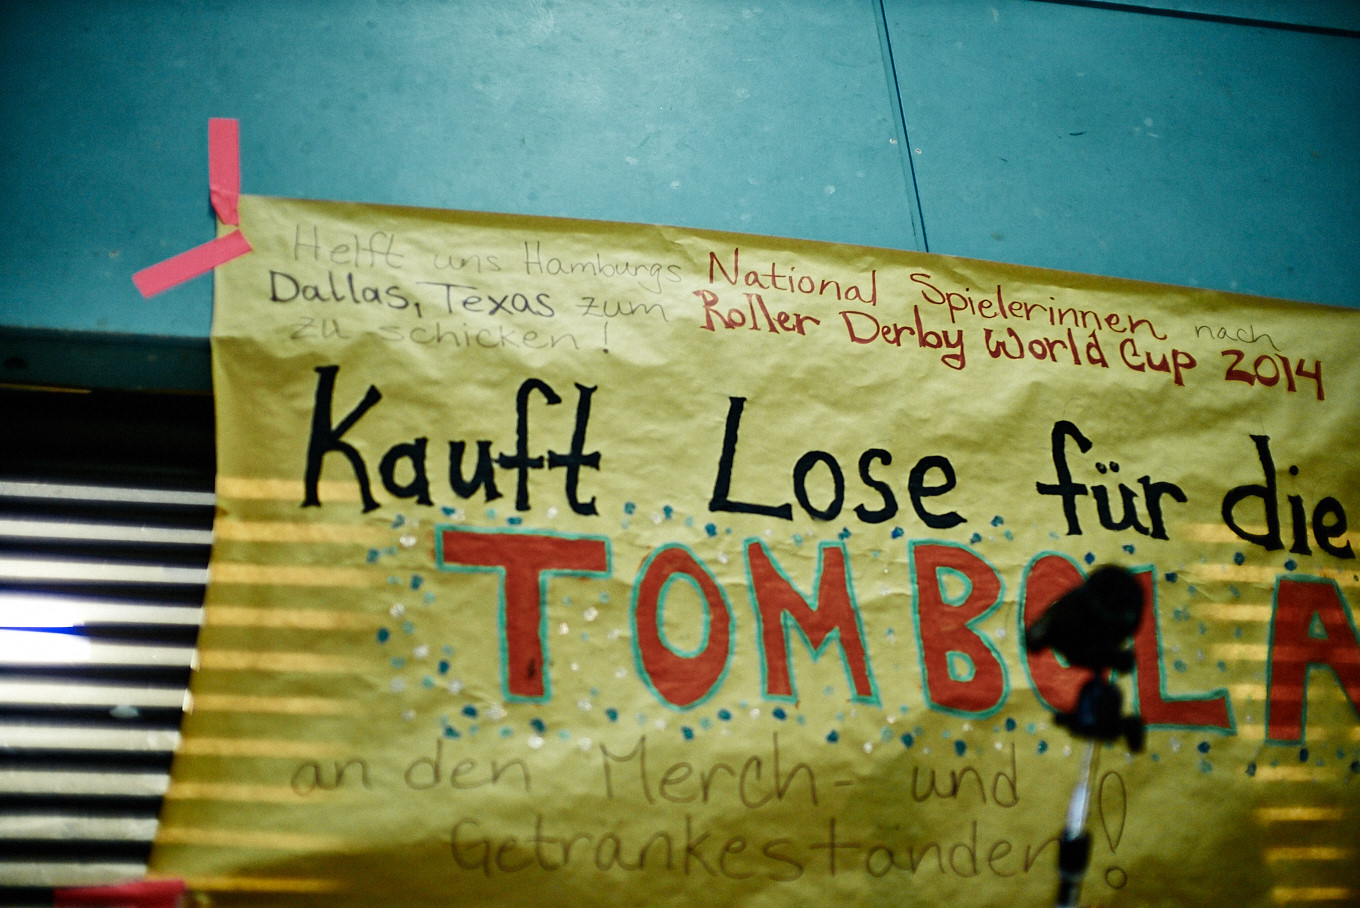 Helft uns Hamburgs National Spielerinnen nach
Dallas, Texas zum Roller Derby World Cup 2014
zu schicken!
Kauft Lose für die
TOMBOLA
an den Merch- und
Getränkeständen!